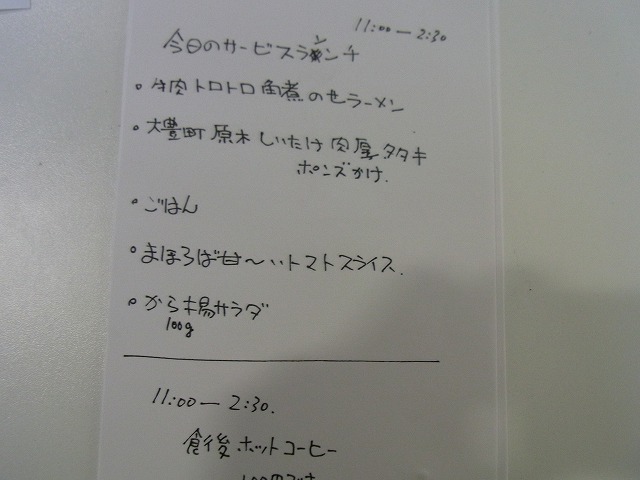 11:00 — 2:30
今日のサービスランチ
• 牛肉トロトロ角煮のせラーメン
• 大豊町原木しいたけ肉厚タタキ
ポンズかけ.
• ごはん
• まほろば甘〜いトマトスライス.
• から揚サラダ
100g
11:00 — 2:30.
食後ホットコーヒー